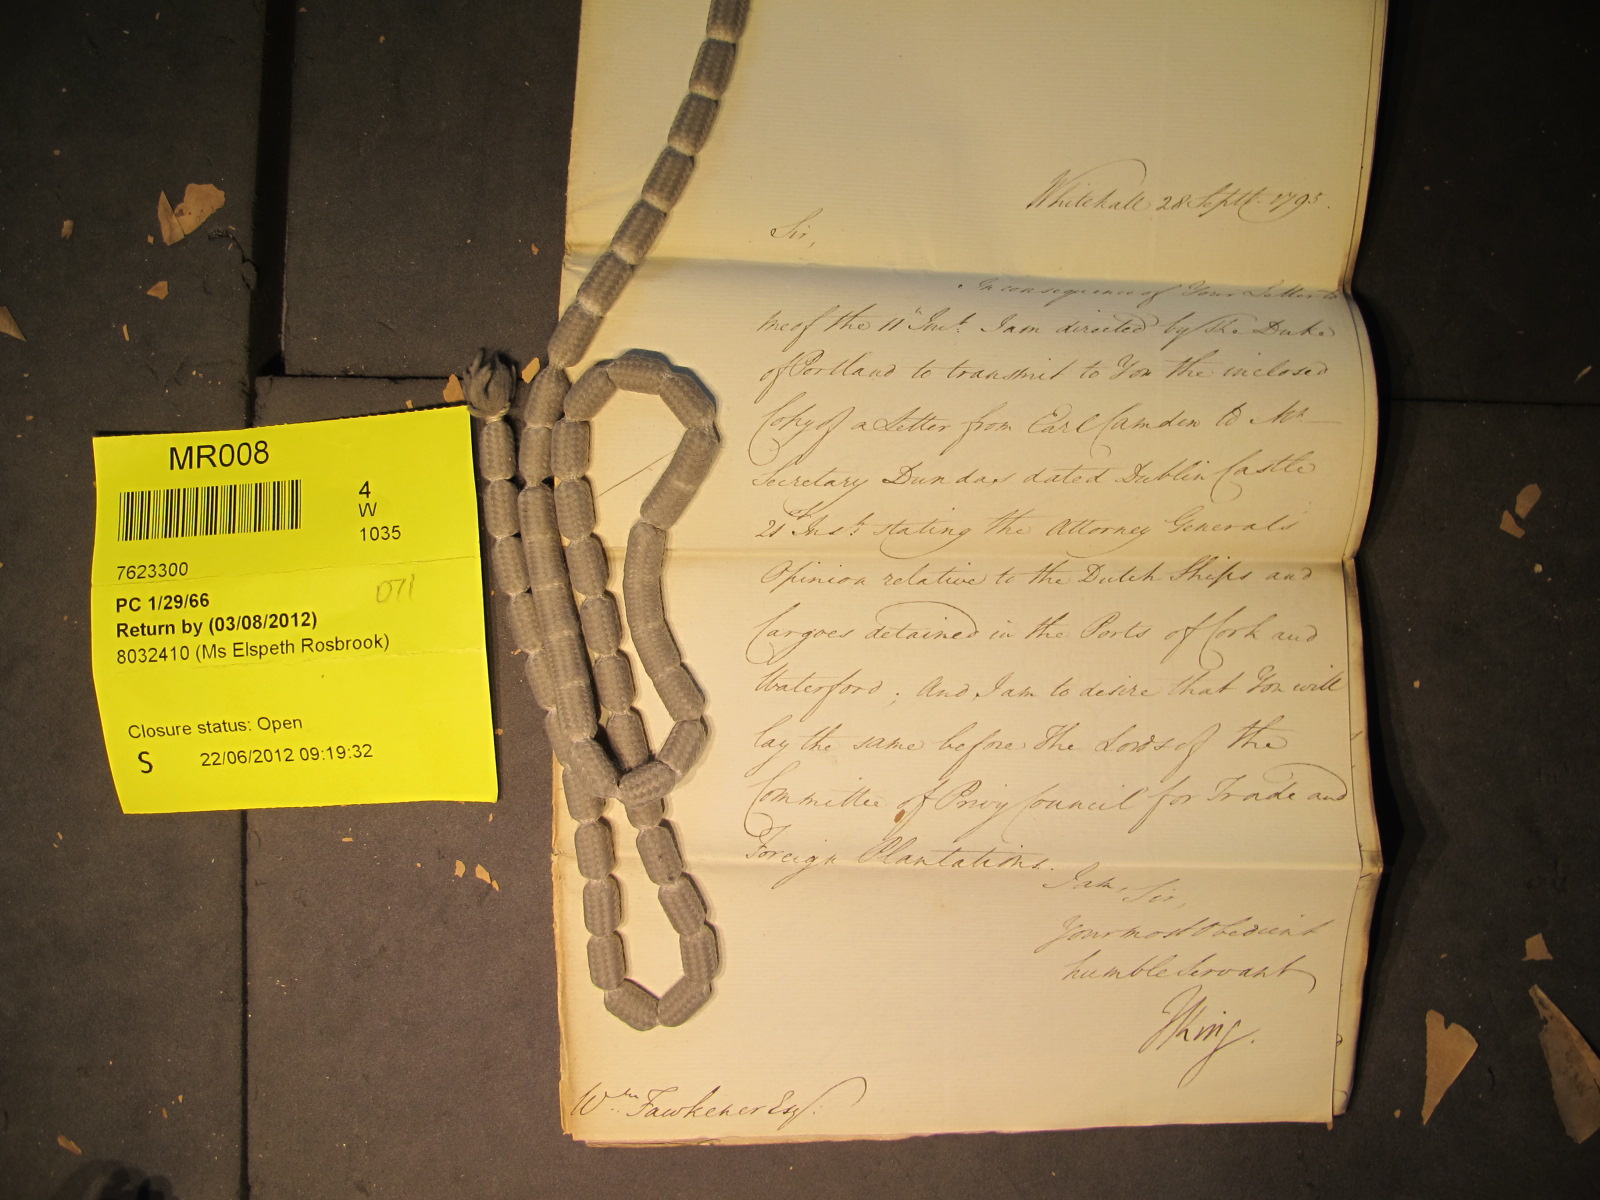 MR008
4
W
1035
7623300
071
PC 1/29/66
Return by (03/08/2012)
8032410 (Ms Elspeth Rosbrook)
Closure status: Open
S 22/06/2012 09:19:32
Whitehall 28 Septr. 1795.
Sir,
In consequence of Your Letter to
me of the 11th Inst. I am directed by The Duke
of Portland to transmit to You the inclosed
Copy of a Letter from Earl Camden to Mr.
Secretary Dundas dated Dublin Castle
21st Inst. stating the Attorney Generals
Opinion relative to the Dutch Ships and
Cargoes detained in the Ports of Cork and
Waterford; And I am to desire that You will
lay the same before The Lords of the
Committee of Privy Council for Trade and
Foreign Plantations.
I am, Sir,
Your most Obedient
humble Servant
J King.
Wm. Fawkener Esqr.